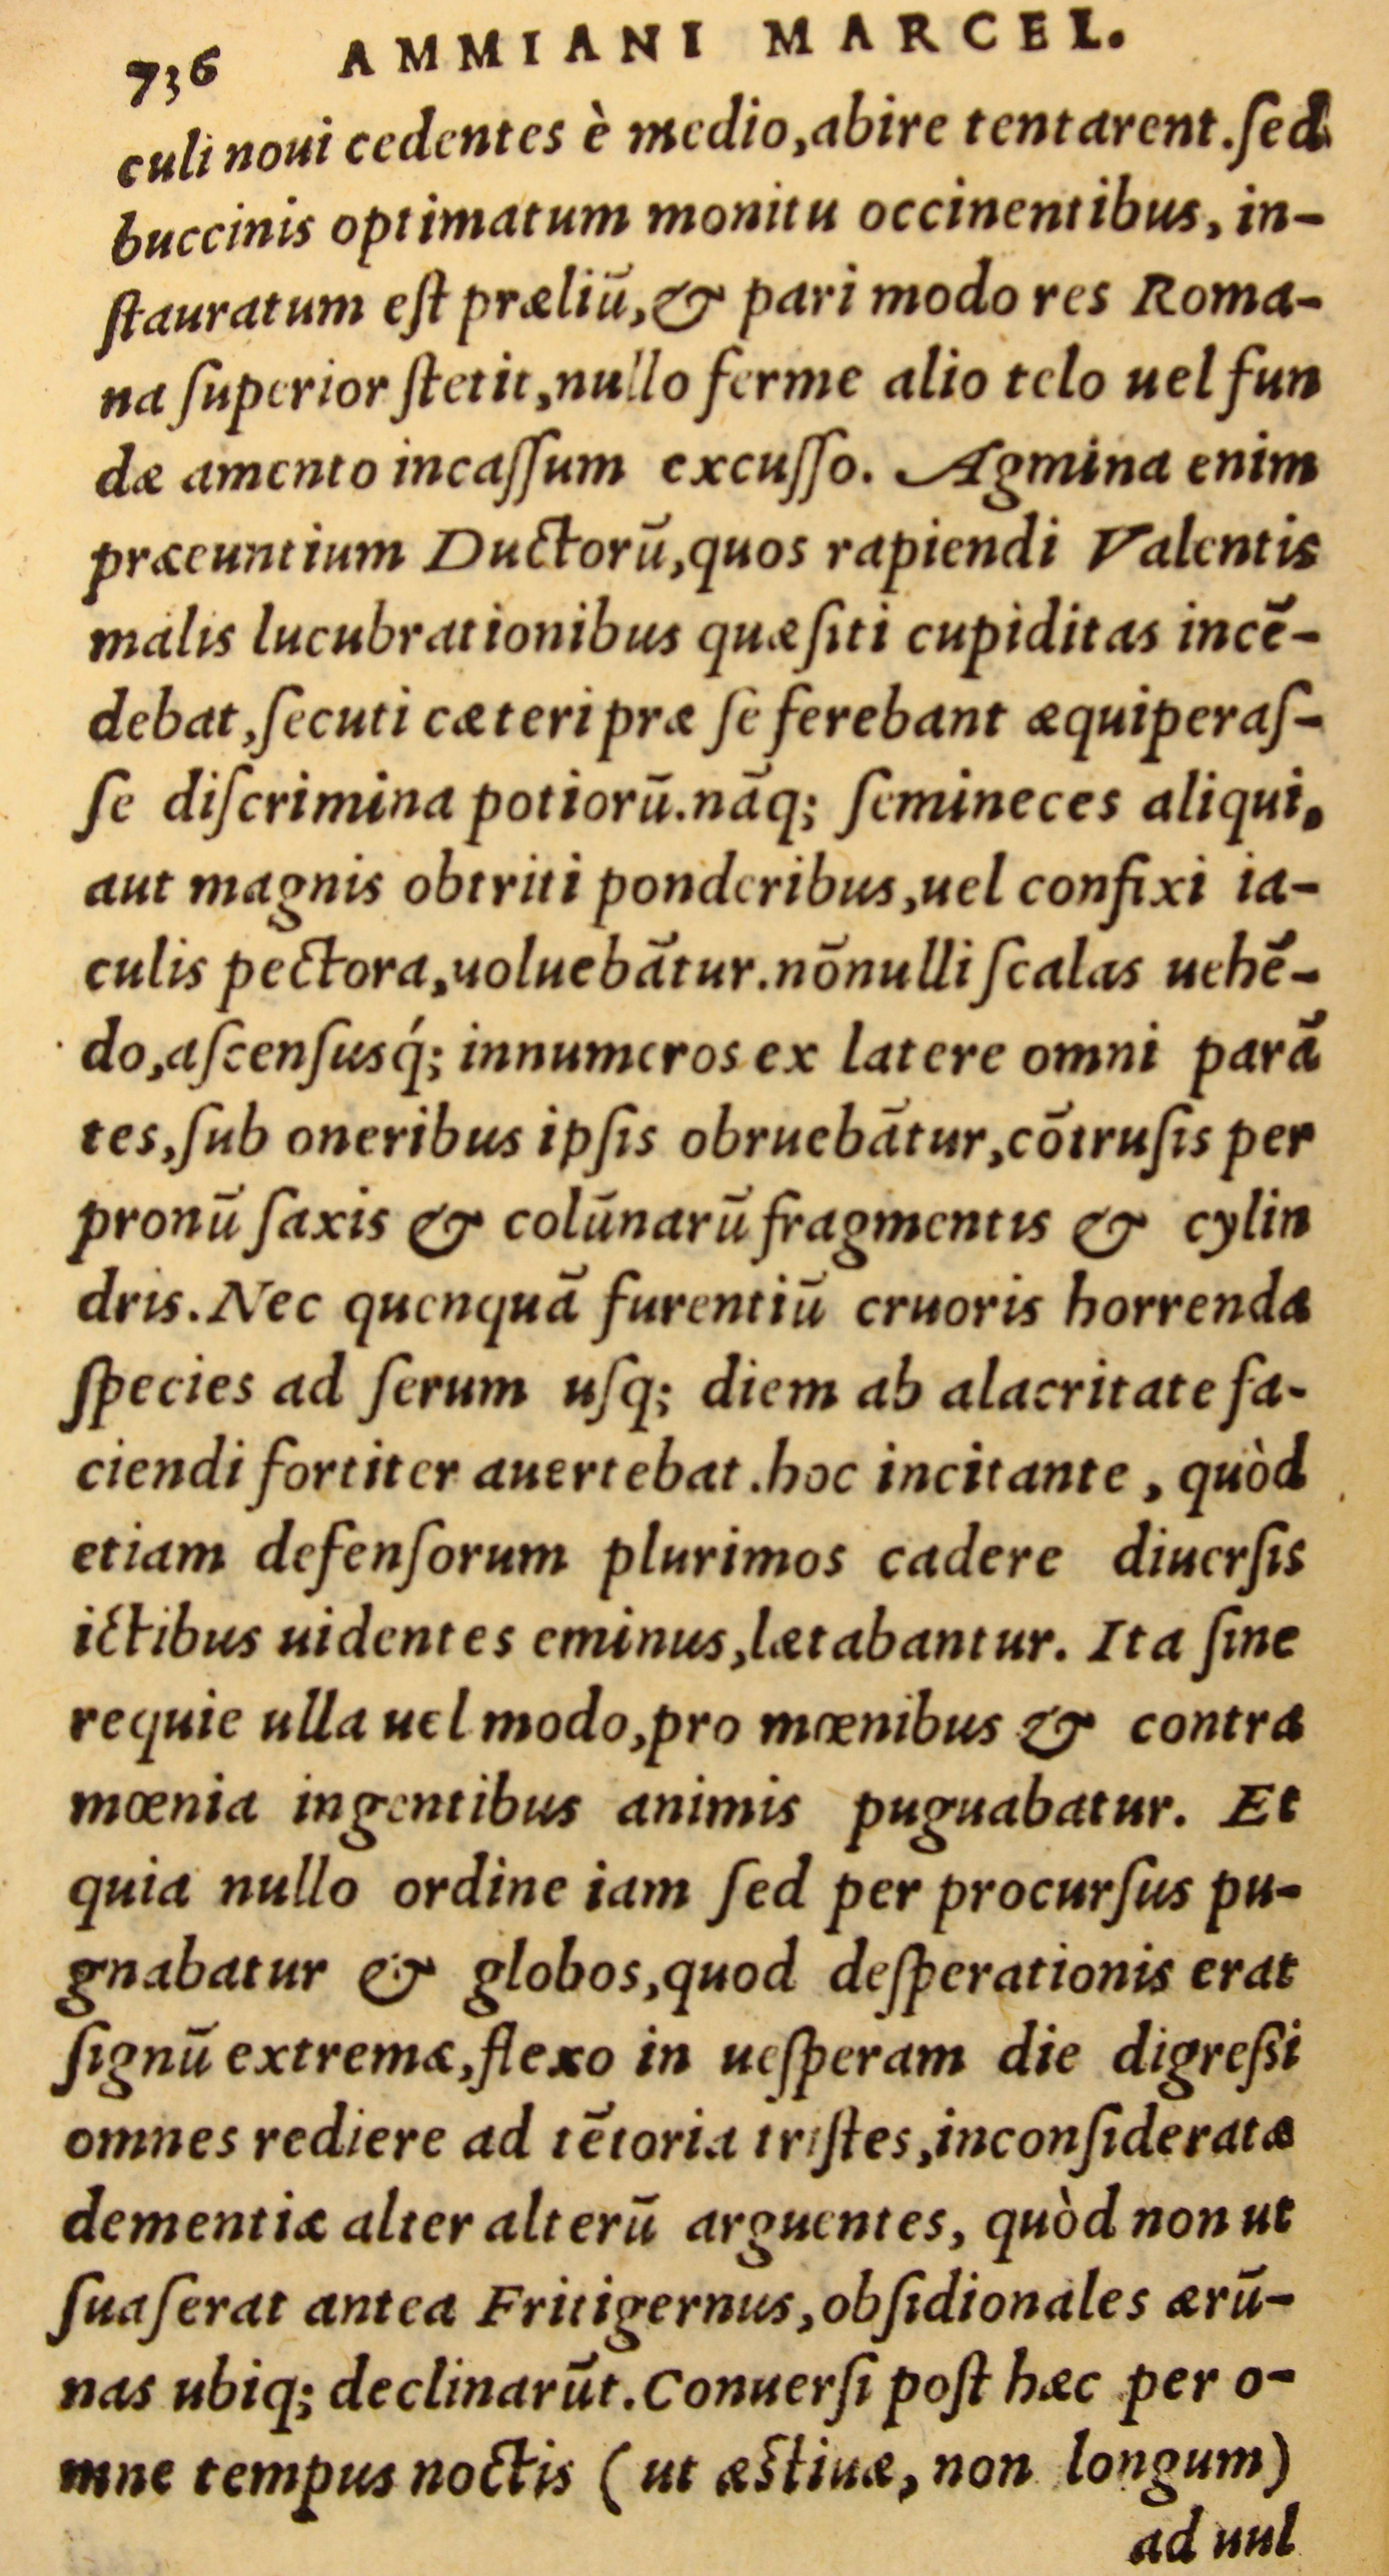 736 AMMIANI MARCEL.
culi noui cedentes è medio,abire tentarent.ſed
buccinis optimatum monitu occinentibus, in-
ſtauratum eſt præliū,& pari modo res Roma-
na ſuperior ſtetit,nullo ferme alio telo uel fun
dæ amento incaſſum excuſſo. Agmina enim
præeuntium Ductorū,quos rapiendi Valentis
malis lucubrationibus quæſiti cupiditas incē-
debat,ſecuti cæteri præ ſe ferebant æquiperaſ-
ſe diſcrimina potiorū.nāq; ſemineces aliqui,
aut magnis obtriti ponderibus,uel confixi ia-
culis pectora,uoluebātur.nōnulli ſcalas uehē-
do,aſcenſusq́; innumeros ex latere omni parā
tes,ſub oneribus ipſis obruebātur,cōtruſis per
pronū ſaxis & colūnarū fragmentis & cylin
dris.Nec quenquā furentiū cruoris horrenda
ſpecies ad ſerum uſq; diem ab alacritate fa-
ciendi fortiter auertebat.hoc incitante, quòd
etiam defenſorum plurimos cadere diuerſis
ictibus uidentes eminus,lætabantur. Ita ſine
requie ulla uel modo,pro mœnibus & contra
mœnia ingentibus animis puguabatur. Et
quia nullo ordine iam ſed per procurſus pu-
gnabatur & globos,quod deſperationis erat
ſignū extremæ,flexo in ueſperam die digreſſi
omnes rediere ad tētoria triſtes,inconſideratæ
dementiæ alter alterū arguentes, quòd non ut
ſuaſerat antea Fritigernus,obſidionales ærū-
nas ubiq; declinarūt.Conuerſi poſt hæc per o-
mne tempus noctis (ut æſtiuæ, non longum)
ad uul